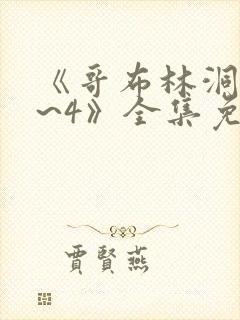 《哥布林洞
~4》全集免
贾賢燕